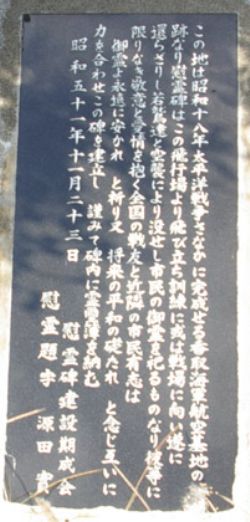 この地は昭和十八年太平洋戦争さなかに完成せる香取海軍航空基地の
跡なり慰霊碑はこの飛行場より飛び立ち訓練に或は戦場に向い遂に
還らざりし若鷲達と空襲により没せし市民の御霊を祀るものなり彼等に
限りなき敬意と愛情を抱く全国の戦友と近隣の市民有志は
御霊よ永遠に安かれ と祈り又 将来の平和の礎たれ と念じ互いに
力を合わせこの碑を建立し 謹みて碑内に霊璽簿を納む
昭和五十一年十一月二十三日
慰霊碑建設期成会
慰霊題字 源田實